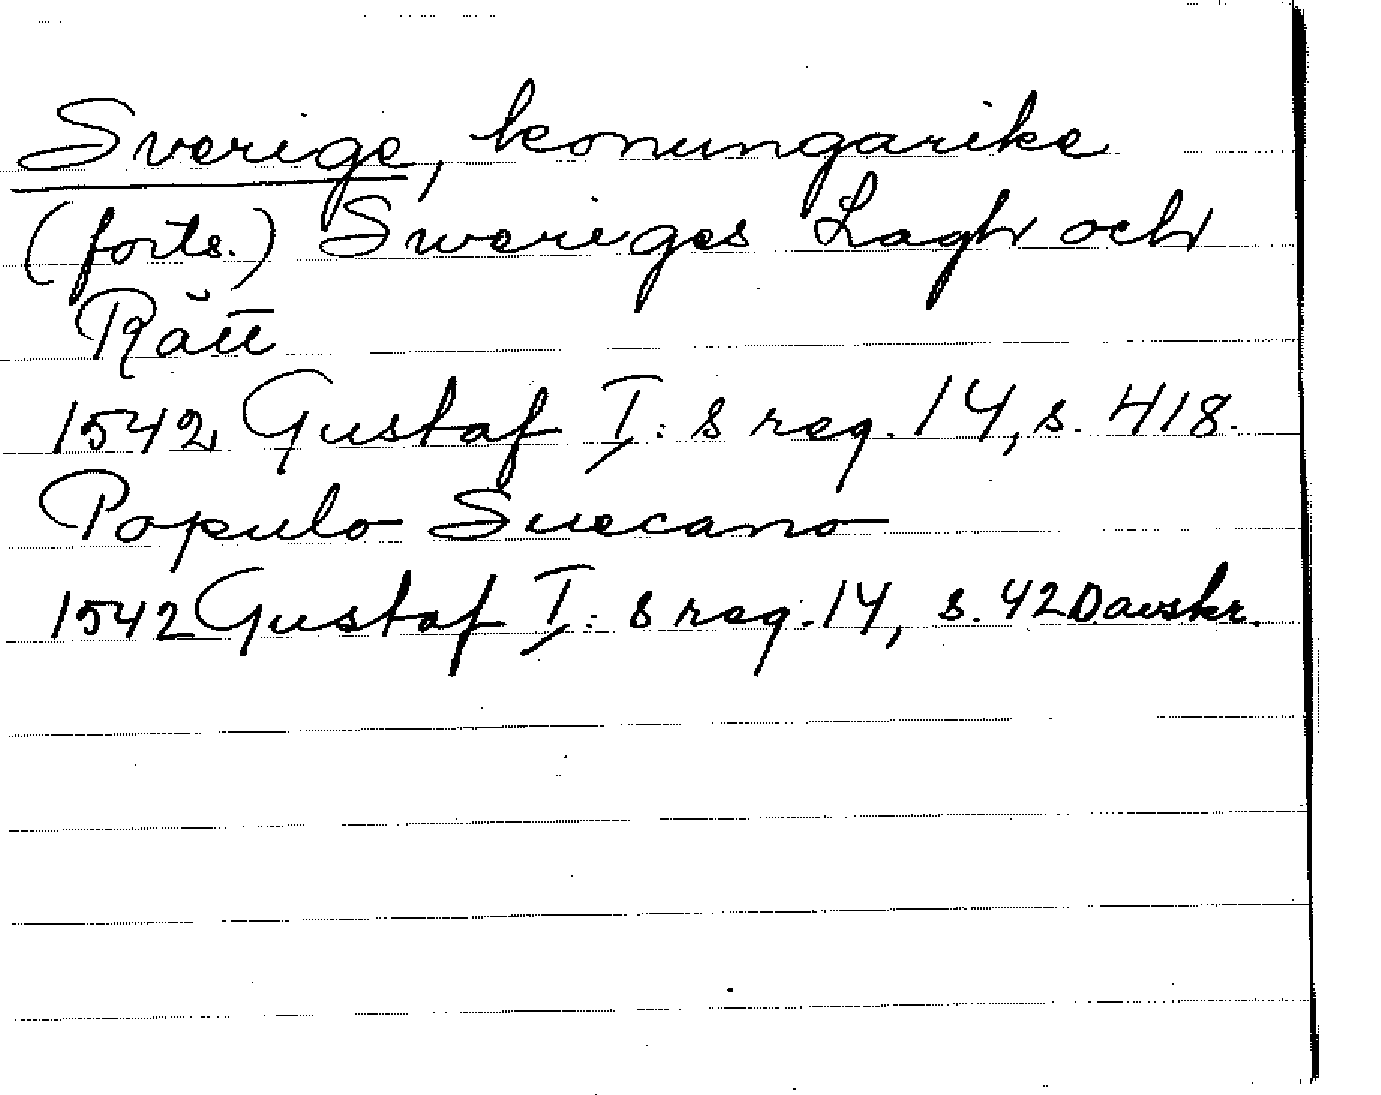 Sverige, konungarike
(forts.) Sweriges Lagh och
Rätt
1542 Gustaf I:s reg. 14, s. 418.
Populo Suecano
1542 Gustaf I:s reg. 14, s. 420 avskr.